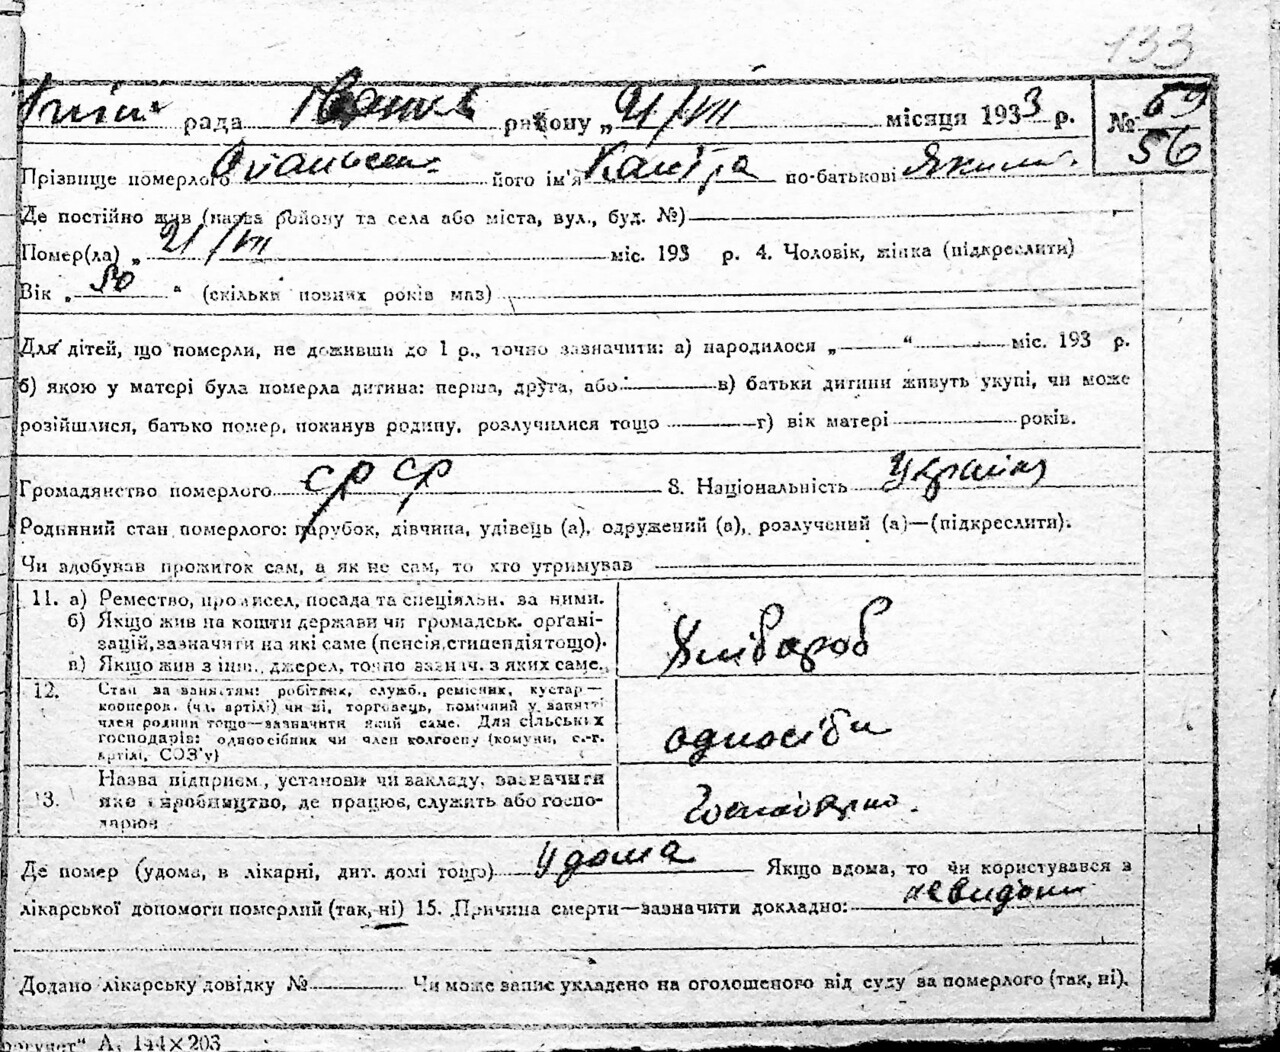 133
рада району „21/VII місяця 1933 р. № 69
56
Прізвище померлого його ім'я по-батькові Яким.
Де постійно жив (назва району та села або міста, вул., буд. №)
Помер(ла) „21/VII міс. 193 р. 4. Чоловік, жінка (підкреслити)
Вік „50“ (скільки повних років маз)
Для дітей, що померли, не доживши до 1 р., точно зазначити: а) народилося „ “ міс. 193 р.
б) якою у матері була померла дитина: перша, друга, або в) батьки дитини живуть укупі, чи може
розійшлися, батько помер, покинув родину, розлучилися тощо г) вік матері років.
Громадянство померлого СРСР 8. Національність Україн
Родинний стан померлого: парубок, дівчина, удівець (а), одружений (а), розлучений (а)—(підкреслити).
Чи здобував прожиток сам, а як не сам, то хто утримував
11. а) Ремество, промисел, посада та спеціяльн. за ними.
б) Якщо жив на кошти держави чи громадськ. орґані-
зацій, зазначити на які саме (пенсія, стипендія тощо).
в) Якщо жив з інш. джерел, точно зазнач. з яких саме.
Хлібороб
12. Стан за заняттям: робітник, служб., ремісник, кустар—
кооперов. (чл. артілі) чи ні, торговець, помічний у занятті
член родини тощо—зазначити який саме. Для сільських
господарів: одноосібник чи член колгоспу (комуни, с.-г.
артілі, СОЗ'у)
односібн
13. Назва підприєм., установи чи закладу, зазначити
яке виробництво, де працює, служить або госпо-
дарює
Де помер (удома, в лікарні, дит. домі тощо) удома Якщо вдома, то чи користувався з
лікарської допомоги померлий (так, ні) 15. Причина смерти—зазначити докладно: невидом
Додано лікарську довідку № Чи може запис укладено на оголошеного від суду за померлого (так, ні).
А. 144×203